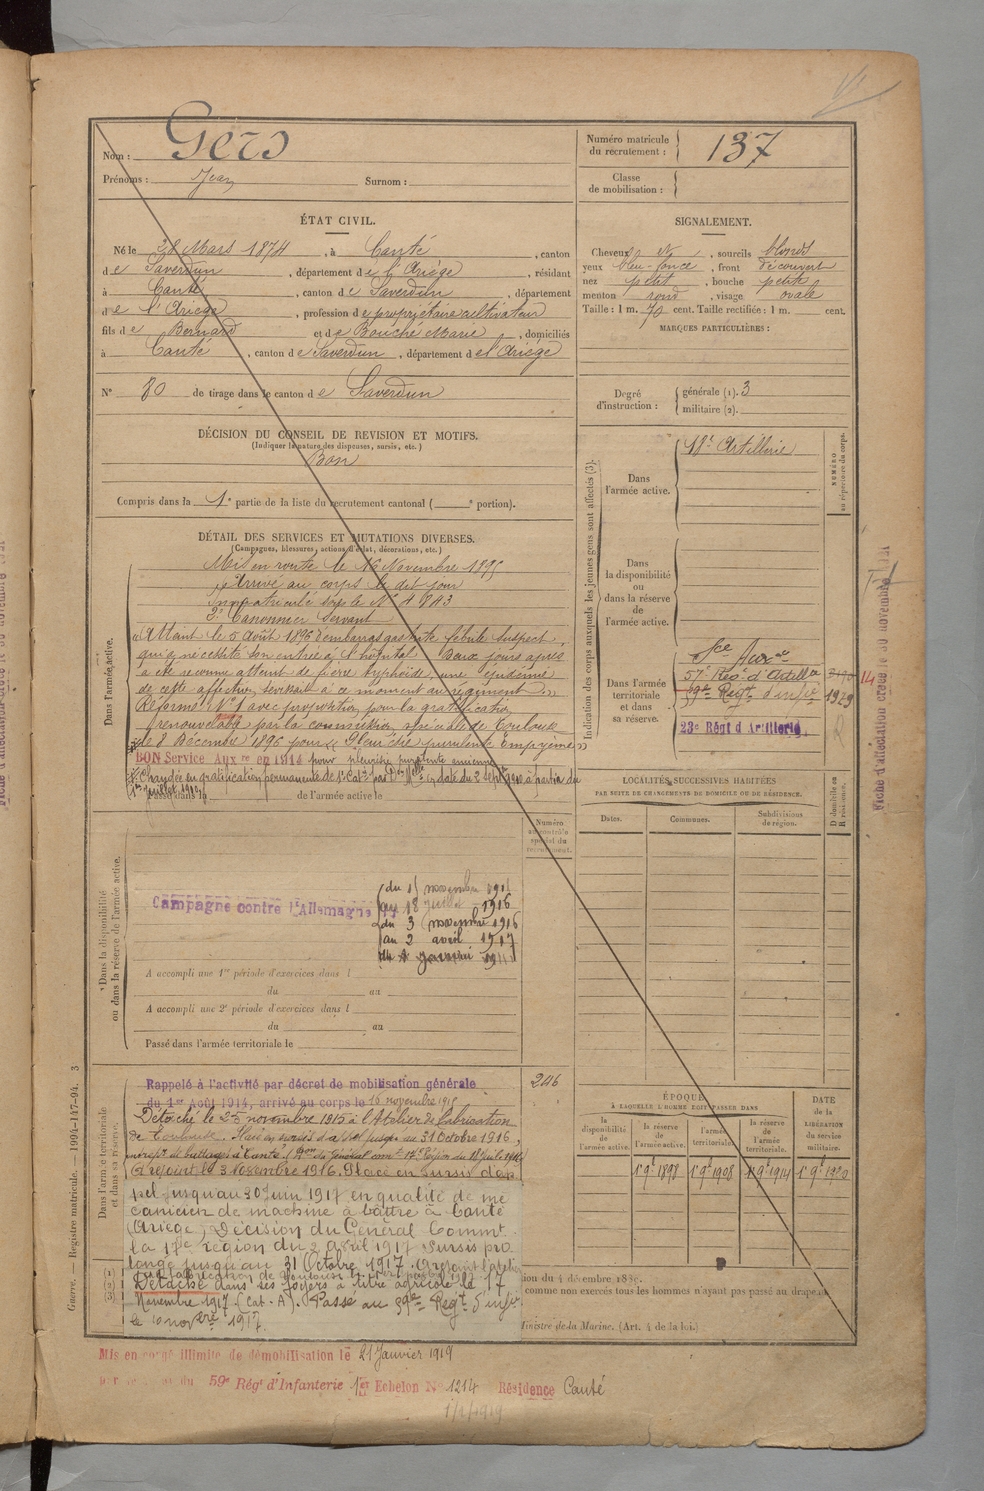 Nom : Gers
Prénoms : Jean Surnom :
Numéro matricule du recrutement : 137
Classe de mobilisation :
ÉTAT CIVIL.
Né le 28 Mars 1874, à Canté, canton
de Saverdun, département de l'Ariège, résidant
à Canté, canton de Saverdun, département
de l'Ariège, profession de propriétaire cultivateur
fils de Bernard et de Bouché Marie, domiciliés
à Canté, canton de Saverdun, département de l'Ariège
N° 80 de tirage dans le canton de Saverdun
SIGNALEMENT.
Cheveux et, sourcils blonds
yeux bleu foncé, front découvert
nez petit, bouche petite
menton rond, visage ovale
Taille : 1 m. 70 cent. Taille rectifiée : 1 m. cent.
MARQUES PARTICULIÈRES :
Degré d'instruction : générale (1). 3
militaire (2).
DÉCISION DU CONSEIL DE REVISION ET MOTIFS.
(Indiquer la nature des dispenses, sursis, etc.)
Bon
Compris dans la 1e partie de la liste du recrutement cantonal ( e portion).
DÉTAIL DES SERVICES ET MUTATIONS DIVERSES.
(Campagnes, blessures, actions d'éclat, décorations, etc.)
Dans l'armée active.
Mis en route le 16 Novembre 1895
Arrivé au corps le dit jour
Immatriculé sous le N°
2e Canonnier Servant
Atteint le 5 Août 1896 d'embarras gastrite fébrile suspect
qui a nécessité son entrée à l'hôpital. Deux jours après
a été reconnu atteint de fièvre typhoïde, une épidémie
de cette affection sévissait à ce moment au régiment
Réformé N° 1 avec proposition pour la gratification
renouvelable par la commission spéciale de Toulouse
le 8 Décembre 1896 pour Pleurésie purulente Empyème
BON Service Auxre en 1914 pour pleurésie purulente ancienne
Passé dans l de l'armée active le
Indication des corps auxquels les jeunes gens sont affectés (3).
Dans l'armée active.
18e Artillerie
Dans la disponibilité ou dans la réserve de l'armée active.
Dans l'armée territoriale et dans sa réserve.
Sce Auxre
57e Régt d'Artillie
59e Regt d'infie
23e Régt d'Artillerie
NUMÉRO au répertoire du corps.
1929
LOCALITÉS SUCCESSIVES HABITÉES
PAR SUITE DE CHANGEMENTS DE DOMICILE OU DE RÉSIDENCE.
Dates. Communes. Subdivisions de région.
D domicile ou R résidence.
Dans la disponibilité ou dans la réserve de l'armée active.
Campagne contre l'Allemagne
au 18 juillet 1916
du 3 novembre 1916
au 2 avril 1917
A accompli une 1re période d'exercices dans l
du au
A accompli une 2e période d'exercices dans l
du au
Passé dans l'armée territoriale le
Dans l'armée territoriale et dans sa réserve.
246
Rappelé à l'activité par décret de mobilisation générale
du 1er Août 1914, arrivé au corps le 16 novembre 1915
Détaché le 25 novembre 1915 à l'Atelier de fabrication
de Toulouse. Placé en sursis d'appel jusqu'au 31 Octobre 1916,
Rejoint le 3 Novembre 1916. Placé en Sursis d'ap
pel jusqu'au 30 Juin 1917 en qualité de mé
canicien de machine à battre à Canté
(Ariège), Décision du Général Commt
la 17e région du 2 avril 1917 Sursis pro
longé jusqu'au 31 Octobre 1917.
Détaché dans ses foyers à titre agricole le 17
Novembre 1917 (Cat. A). Passé au 59e Regt d'infie
ÉPOQUE
À LAQUELLE L'HOMME DOIT PASSER DANS
la disponibilité de l'armée active. la réserve de l'armée active. l'armée territoriale. la réserve de l'armée territoriale. DATE de la LIBÉRATION du service militaire.
1898 1908 1914 1920
comme non exercés tous les hommes n'ayant pas passé au drapeau
Ministre de la Marine. (Art. 4 de la loi.)
Guerre. — Registre matricule. — 1994-147-94. 3
Mis en congé illimité de démobilisation le 21 Janvier 1919
59e Régt d'Infanterie 1er Echelon N° 1214 Résidence Canté